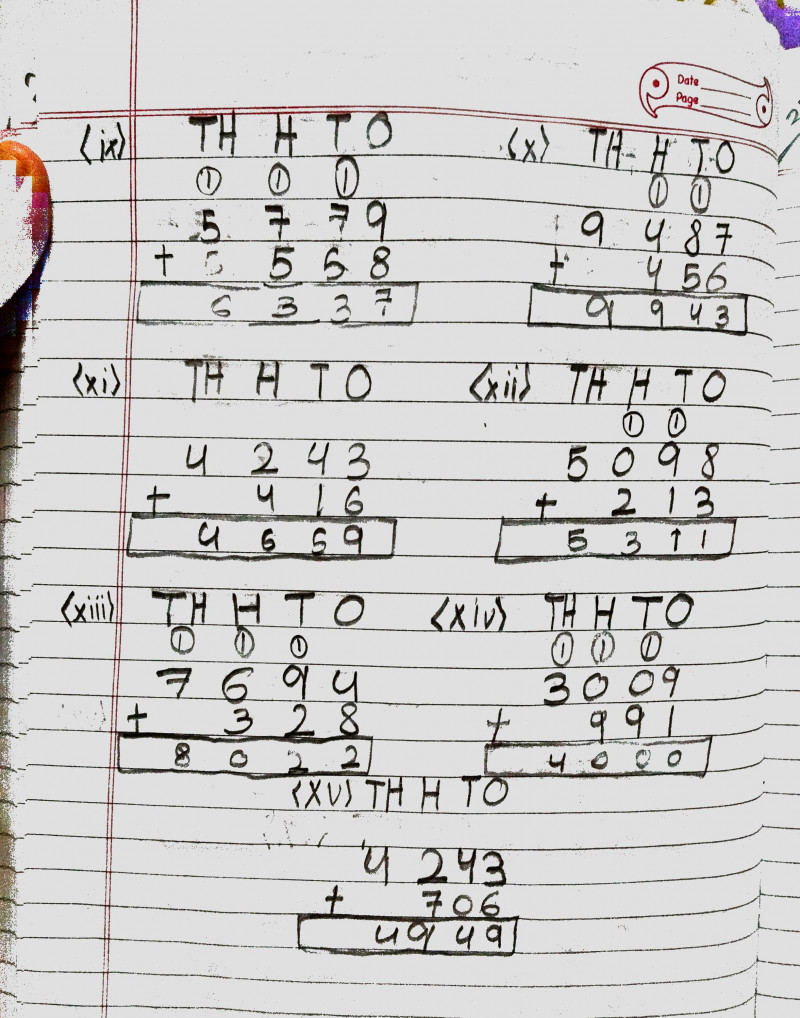 Date
Page
<ix> TH H T O
1 1 1
5 7 7 9
+ 5 5 8
6 3 3 7
<x> TH H T O
1 1
9 4 8 7
+ 4 5 6
9 9 4 3
<xi> TH H T O
4 2 4 3
+ 4 1 6
4 6 5 9
<xii> TH H T O
1 1
5 0 9 8
+ 2 1 3
5 3 1 1
<xiii> TH H T O
1 1 1
7 6 9 4
+ 3 2 8
8 0 2 2
<xiv> TH H T O
1 1 1
3 0 0 9
+ 9 9 1
4 0 0 0
<xv> TH H T O
4 2 4 3
+ 7 0 6
4 9 4 9